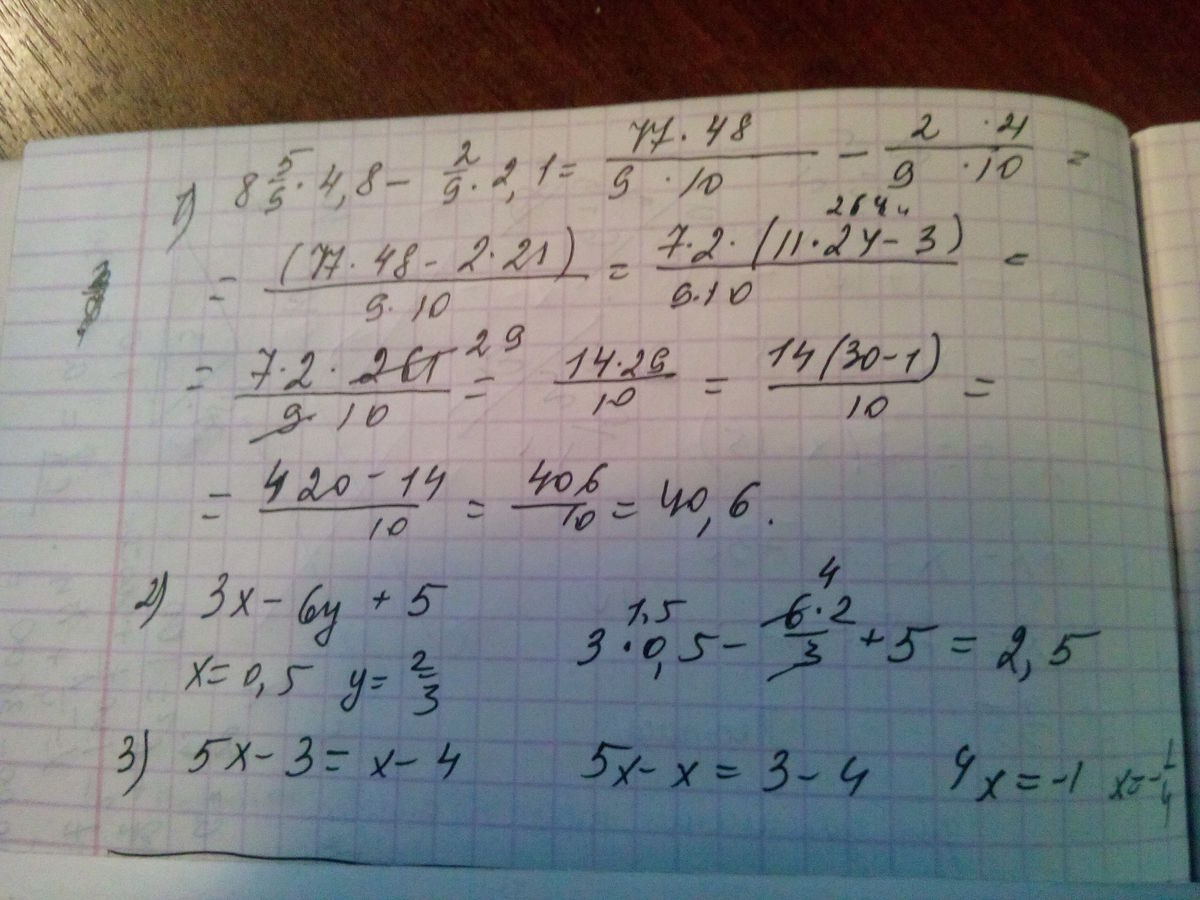 1) 8 5/9 · 4,8 − 2/9 · 2,1 = 77·48/9·10 − 2·21/9·10 =
= (77·48 − 2·21)/9·10 = 7·2·(11·24 − 3)/9·10 = 264
= 7·2·261/9·10 29 = 14·29/10 = 14(30−1)/10 =
= 420−14/10 = 406/10 = 40,6.
2) 3x − 6y + 5
x = 0,5 y = 2/3 3·0,5 1,5 − 6·2/3 4 + 5 = 2,5
3) 5x − 3 = x − 4 5x − x = 3 − 4 4x = −1 x = −1/4